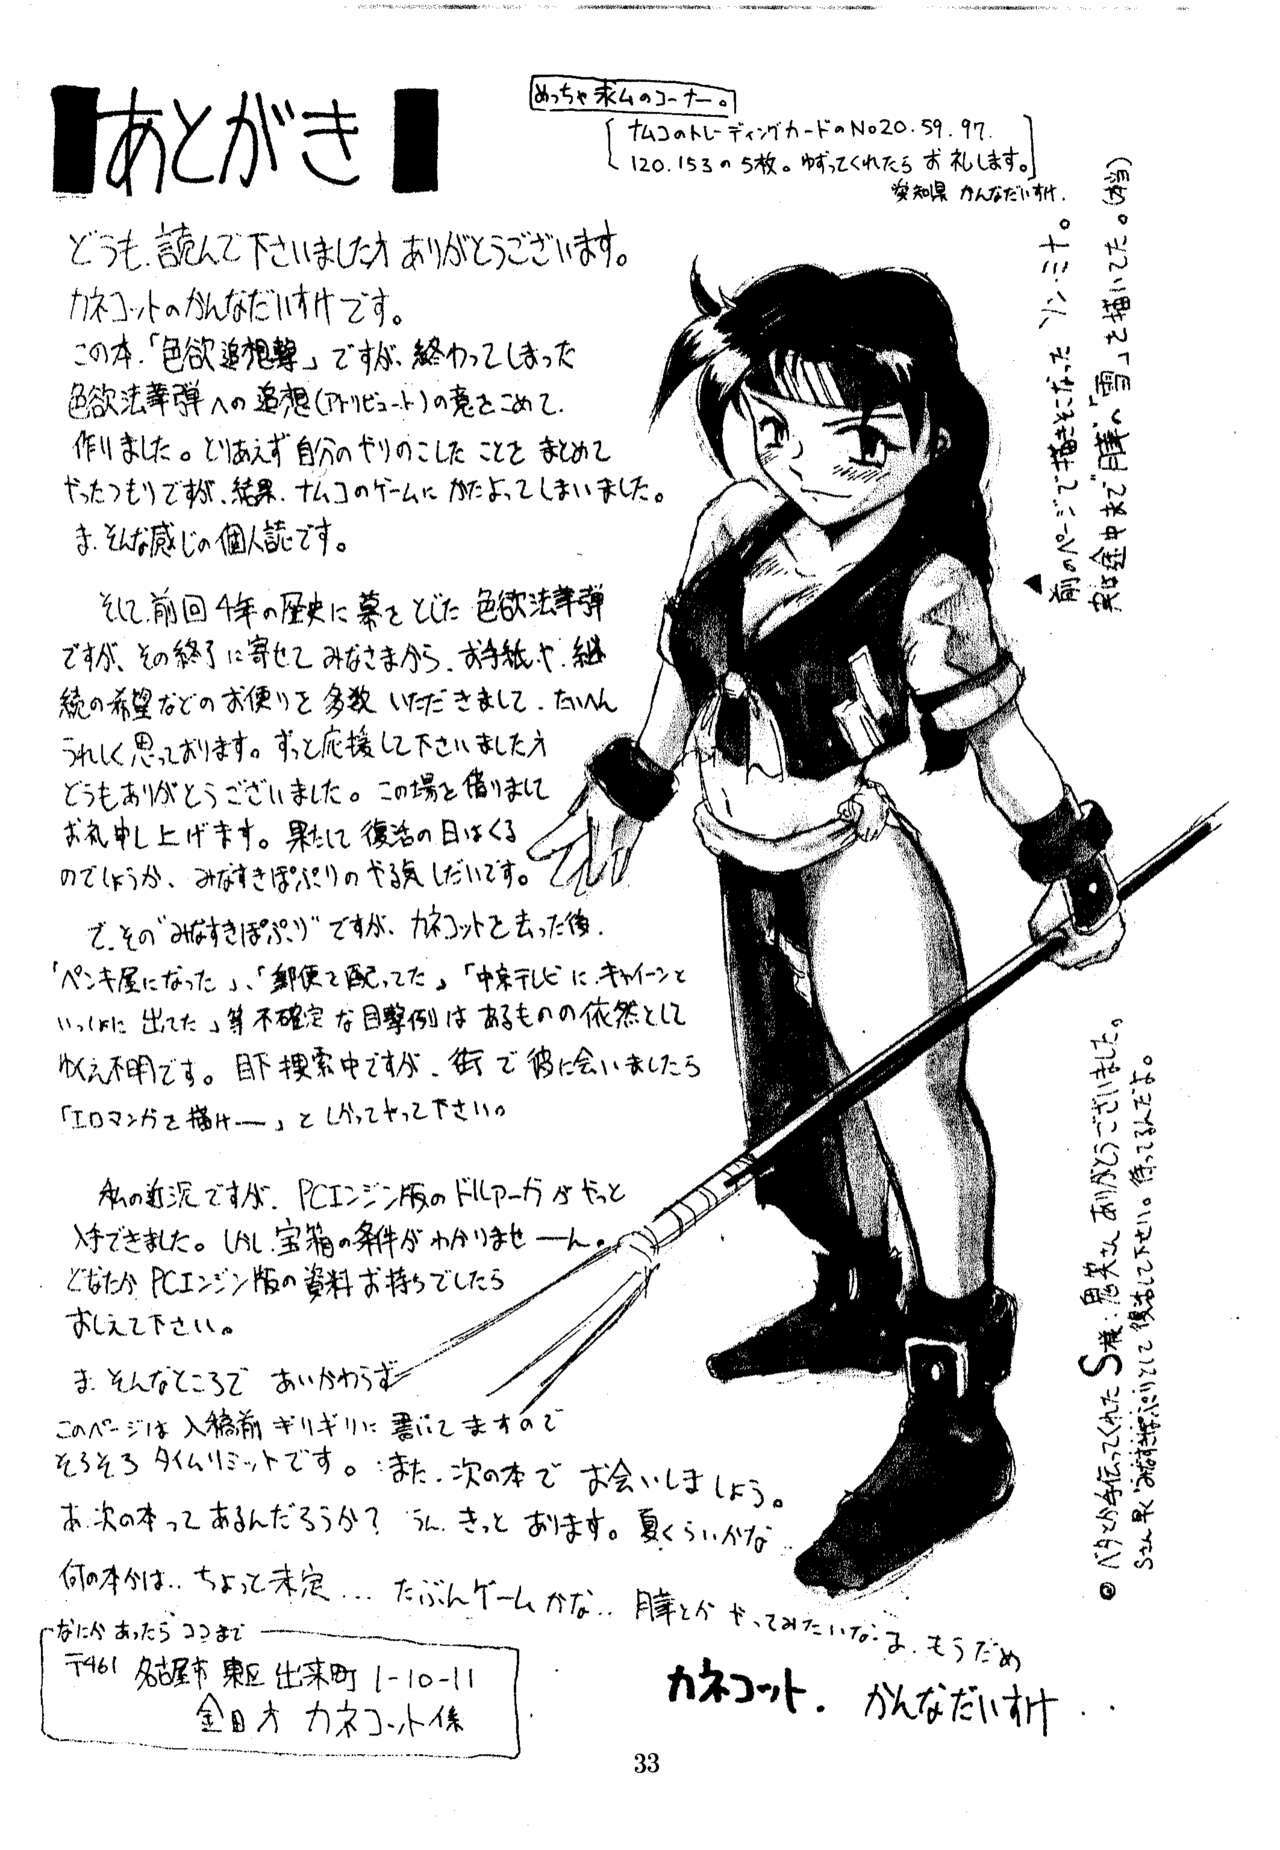 あとがき
めっちゃ求ムのコーナー。
ナムコのトレーディングカードのNo20.59.97.
120.153の5枚。ゆずってくれたらお礼します。
愛知県 かんなだいすけ.
どうも、読んで下さいました方ありがとうございます。
カネコットのかんなだいすけです。
この本、「色欲追想撃」ですが、終わってしまった
色欲法華弾への追想(アトリビュート)の意をこめて、
作りました。とりあえず自分のやりのこしたことをまとめて
やったつもりですが、結果、ナムコのゲームにかたよってしまいました。
ま、そんな感じの個人誌です。
そして、前回4年の歴史に幕をとじた色欲法華弾
ですが、その終了に寄せてみなさまから、お手紙や、継
続の希望などのお便りを多数いただきまして、たいへん
うれしく思っております。ずっと応援して下さいました方
どうもありがとうございました。この場を借りまして
お礼申し上げます。果たして復活の日はくる
のでしょうか、みなすきぽぷりのやる気しだいです。
で、その"みなすきぽぷり"ですが、カネコットを去った後、
「ペンキ屋になった」、「郵便を配ってた」「中京テレビに、キャイーンと
いっしょに出てた」等不確定な目撃例はあるものの依然として
ゆくえ不明です。目下捜索中ですが、街で彼に会いましたら
「エロマンガを描けー」としかってやって下さい。
私の近況ですが、PCエンジン版のドルアーガがやっと
入手できました。しかし、宝箱の条件がわかりませーん。
どなたかPCエンジン版の資料お持ちでしたら
おしえて下さい。
ま、そんなところで あいかわらず
このページは入稿前ギリギリに書いてますので
そろそろタイムリミットです。また、次の本でお会いしましょう。
あ、次の本ってあるんだろうか？うん、きっとあります。夏くらいかな..
何の本かは..ちょっと未定...たぶんゲームかな..月華とかやってみたいな..ま、もうだめ
カネコット. かんなだいすけ...
なにかあったらココまで
〒461 名古屋市東区出来町1-10-11
金田方 カネコット係
▲前のページで描きそこなったソン・ミナ。
実は途中まで"月華"の「雪」を描いてた。
◎ベタとか手伝ってくれたS様、さん ありがとうございました。
Sさん早く"みなすきぽぷり"として復活して下せい。待ってるんだよ。
33